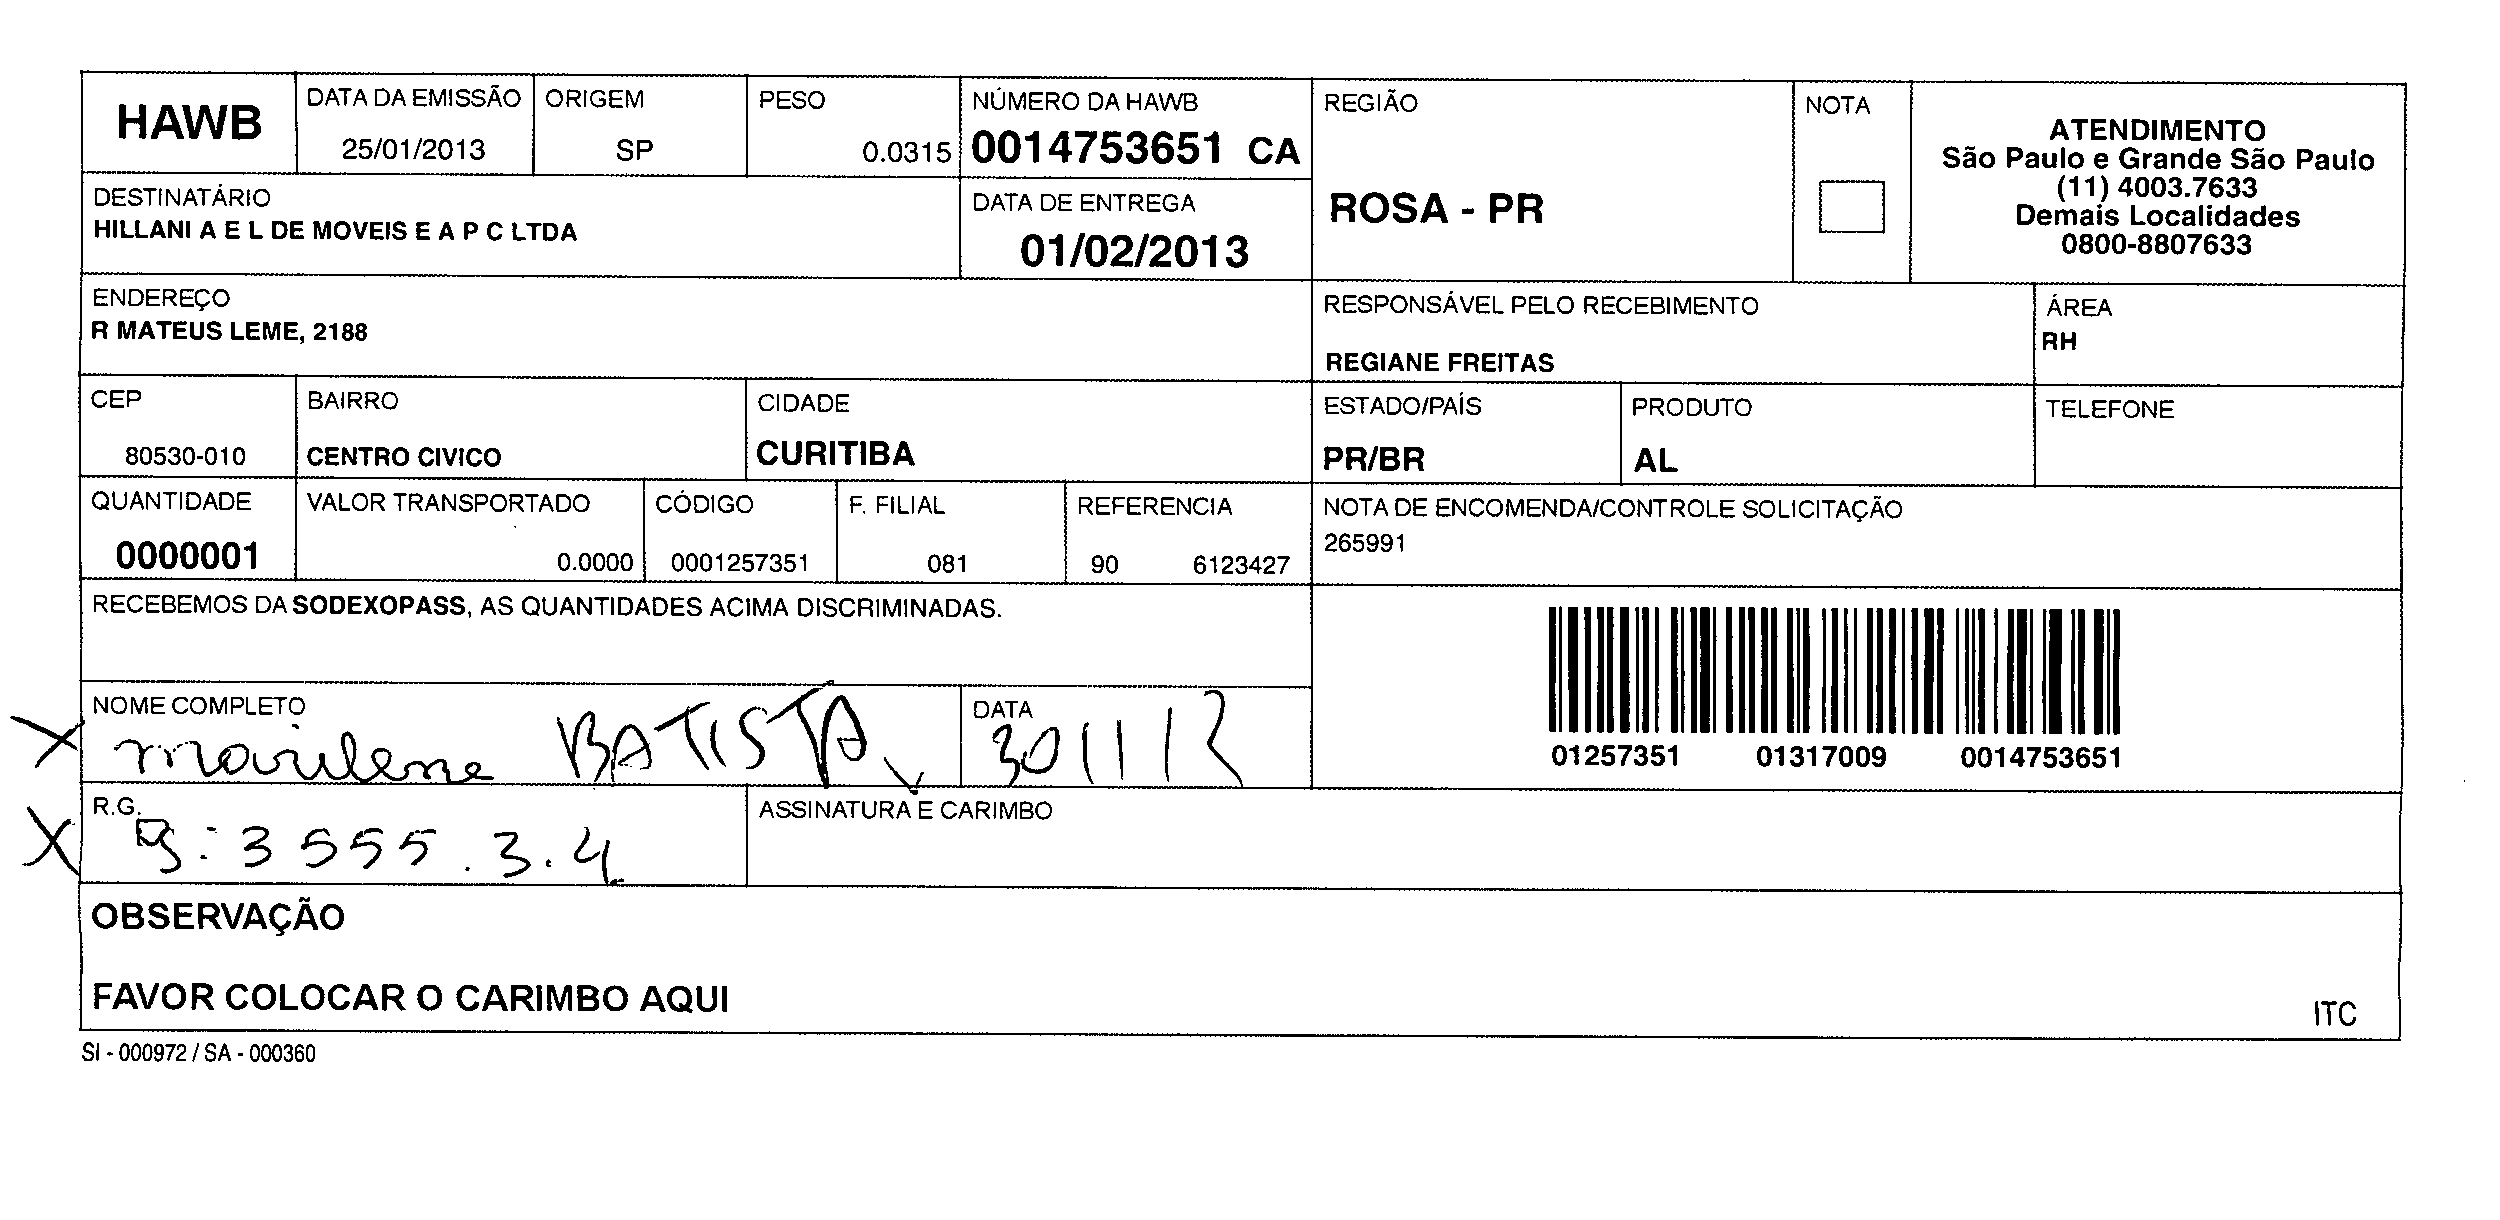 HAWB
DATA DA EMISSÃO
25/01/2013
ORIGEM
SP
PESO
0.0315
NÚMERO DA HAWB
0014753651 CA
REGIÃO
ROSA - PR
NOTA
ATENDIMENTO
São Paulo e Grande São Paulo
(11) 4003.7633
Demais Localidades
0800-8807633
DESTINATÁRIO
HILLANI A E L DE MOVEIS E A P C LTDA
DATA DE ENTREGA
01/02/2013
ENDEREÇO
R MATEUS LEME, 2188
RESPONSÁVEL PELO RECEBIMENTO
REGIANE FREITAS
ÁREA
RH
CEP
80530-010
BAIRRO
CENTRO CIVICO
CIDADE
CURITIBA
ESTADO/PAÍS
PR/BR
PRODUTO
AL
TELEFONE
QUANTIDADE
0000001
VALOR TRANSPORTADO
0.0000
CÓDIGO
0001257351
F. FILIAL
081
REFERENCIA
90 6123427
NOTA DE ENCOMENDA/CONTROLE SOLICITAÇÃO
265991
RECEBEMOS DA SODEXOPASS, AS QUANTIDADES ACIMA DISCRIMINADAS.
01257351 01317009 0014753651
NOME COMPLETO
X marilene BATISTA
DATA
R.G.
X Rg: 3 555.3.4
ASSINATURA E CARIMBO
OBSERVAÇÃO
FAVOR COLOCAR O CARIMBO AQUI
ITC
SI - 000972 / SA - 000360